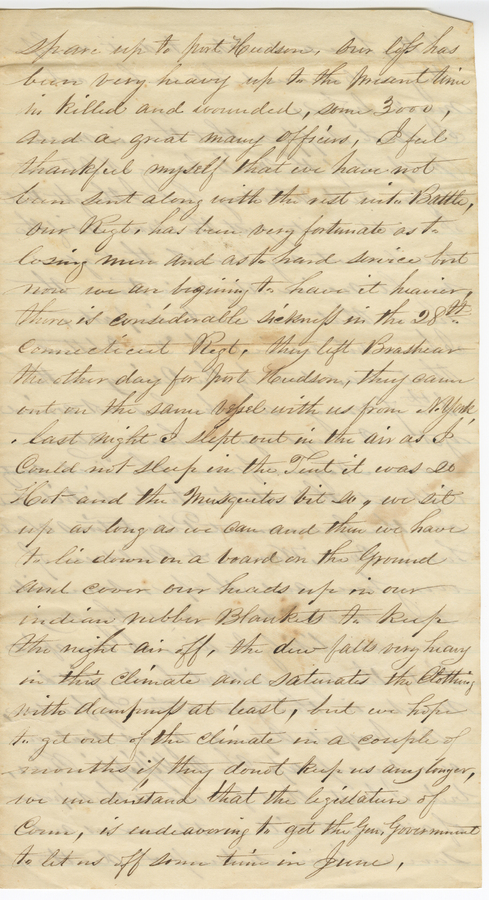 spare up to port Hudson, our loss has
been very heavy up to the preasant time
in killed and wounded, some 3000,
and a great many officirs, I feel
thankfeel myself that we have not
been sent along with the rest into Battle,
our Regt, has been very fortunate as to
losing men and as to hard service but
now we are begining to have it heavier,
there is considerable sickness in the 28th
Connecticut Regt, they left Brashear
the other day for port Hudson, they came
out on the same vessel with us from N. York
, last night I slept out in the air as I
Could not sleep in the Tent it was so
Hot and the Musquitos bit so, we sit
up as long as we can and then we have
to lie down on a board on the Ground
and cover our heads up in our
indian rubber Blankets to keep
the night air off, the dew falls very heavy
in this Climate and saturates the Clothing
with dampness at least, but we hope
to get out of the climate in a couple of
months if they dont keep us any longer,
we understand that the legislature of
Conn, is endeavoring to get the Gen, Government
to let us off some time in June,